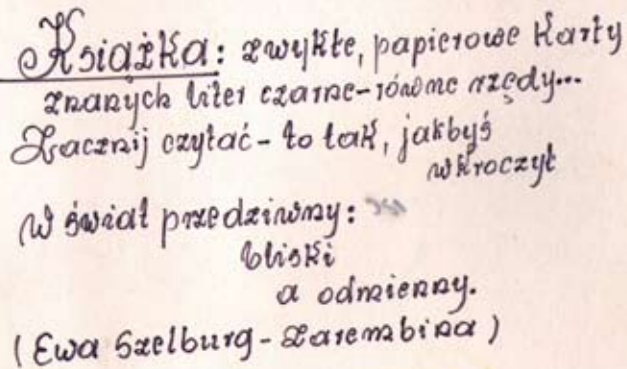 Książka: zwykłe, papierowe karty
znanych liter czarne-równe rzędy...
Zacznij czytać - to tak, jakbyś
wkroczył
w świat przedziwny:
bliski
a odmienny.
(Ewa Szelburg-Zarembina)